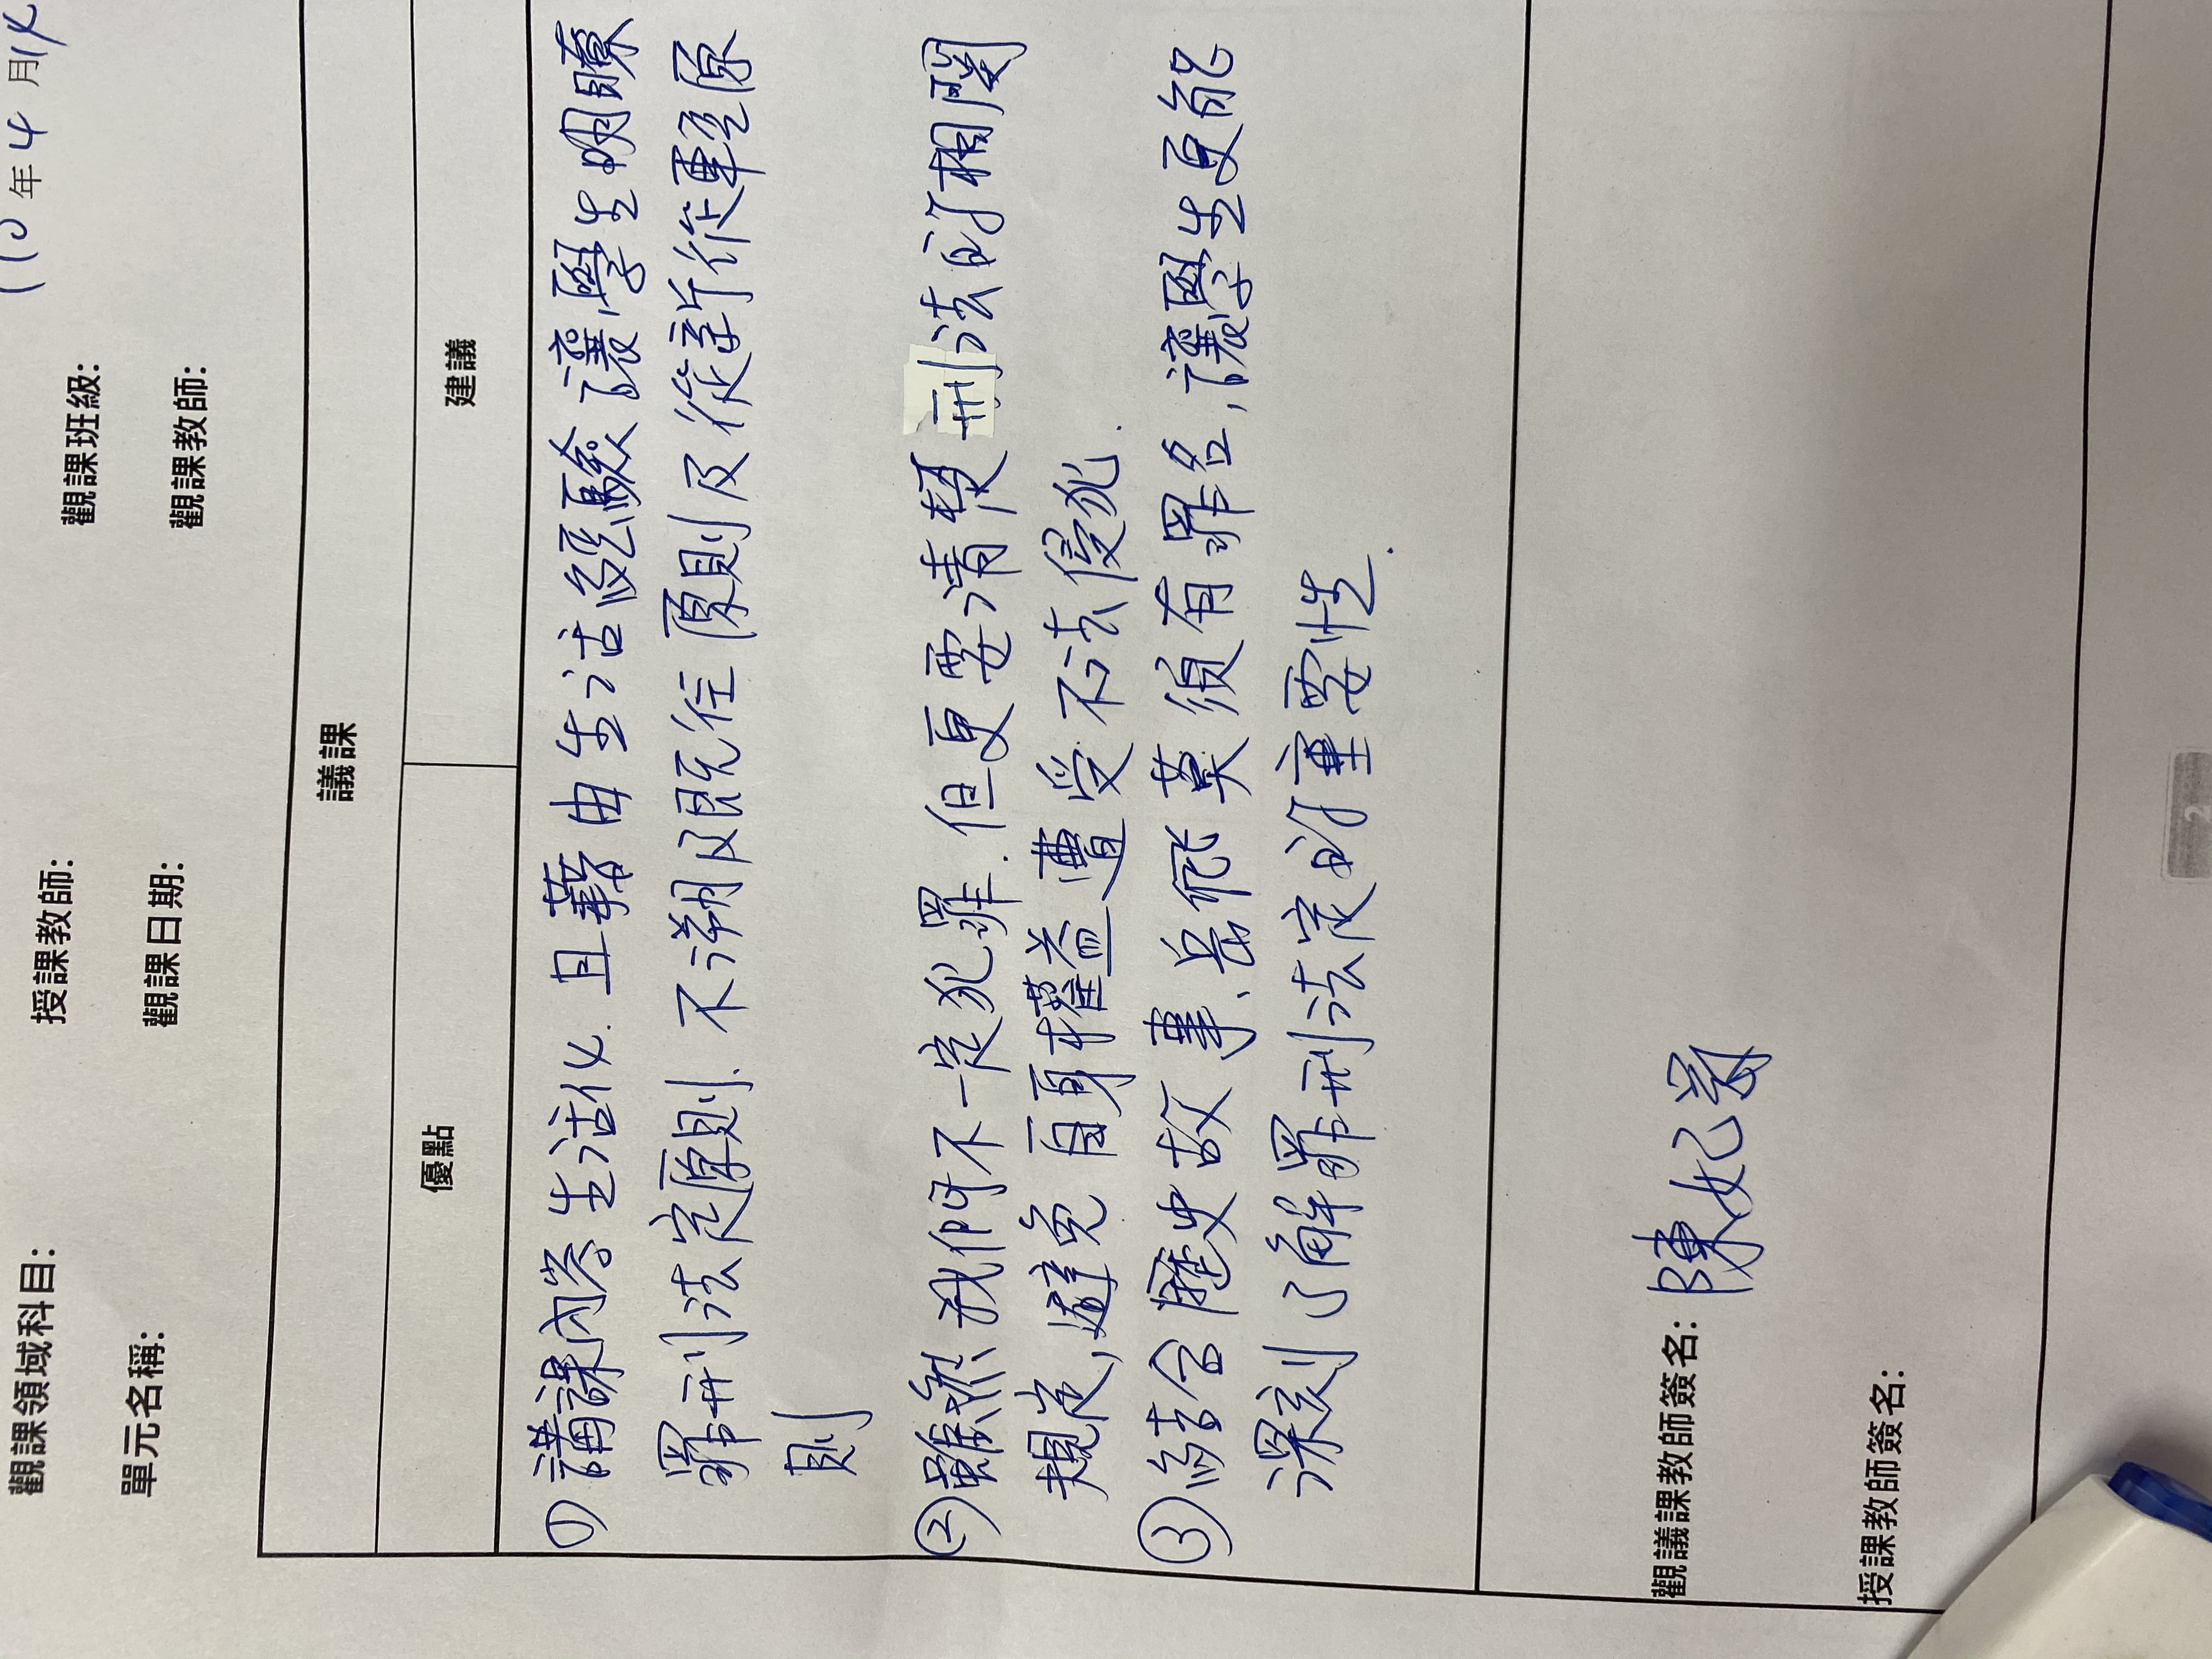 110年4月14
觀課領域科目: 授課教師: 觀課班級:
單元名稱: 觀課日期: 觀課教師:
議課
優點 建議
①講課內容生活化.且藉由生活經驗讓學生明瞭
罪刑法定原則.不溯及既往原則及從新從輕原
則
②雖然我們不一定犯罪.但更要清楚刑法的相關
規定,避免自身權益遭受不法侵犯.
③結合歷史故事、岳飛莫須有罪名,讓學生更能
深刻了解罪刑法定的重要性.
觀議課教師簽名: 陳妃
授課教師簽名:
2